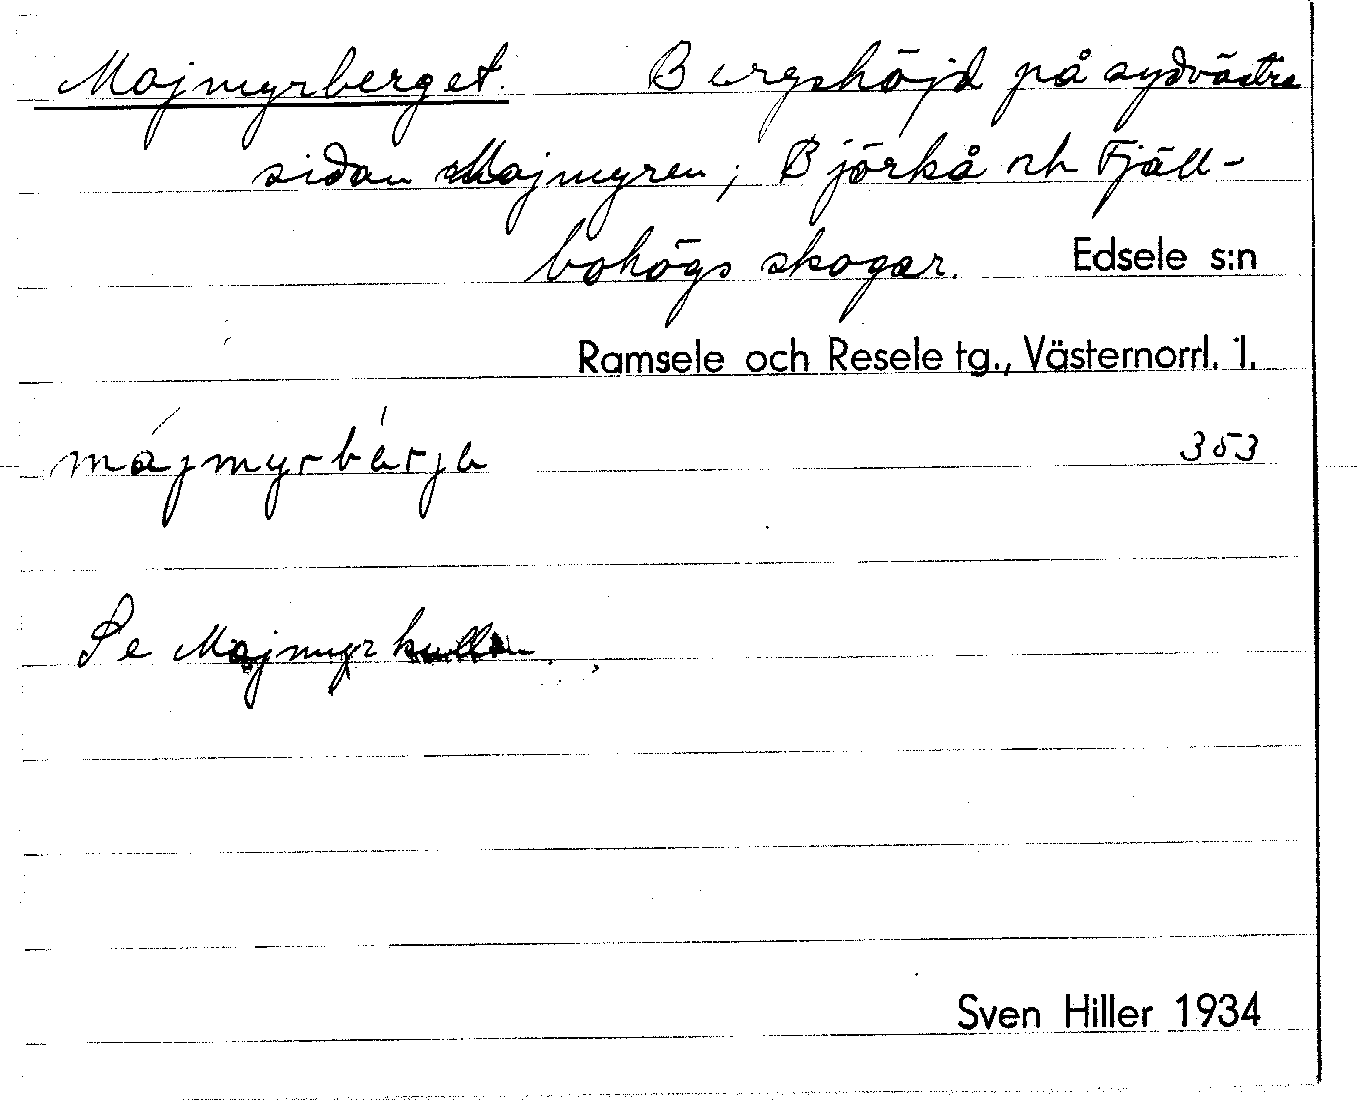 Majmyrberget. Bergshöjd på sydvästra
sidan Majmyren; Björkå och Fjäll-
bohögs skogar. Edsele s:n
Ramsele och Resele tg., Västernorrl. l.
májmyrbárja 353
Se Majmyrkullen.
Sven Hiller 1934